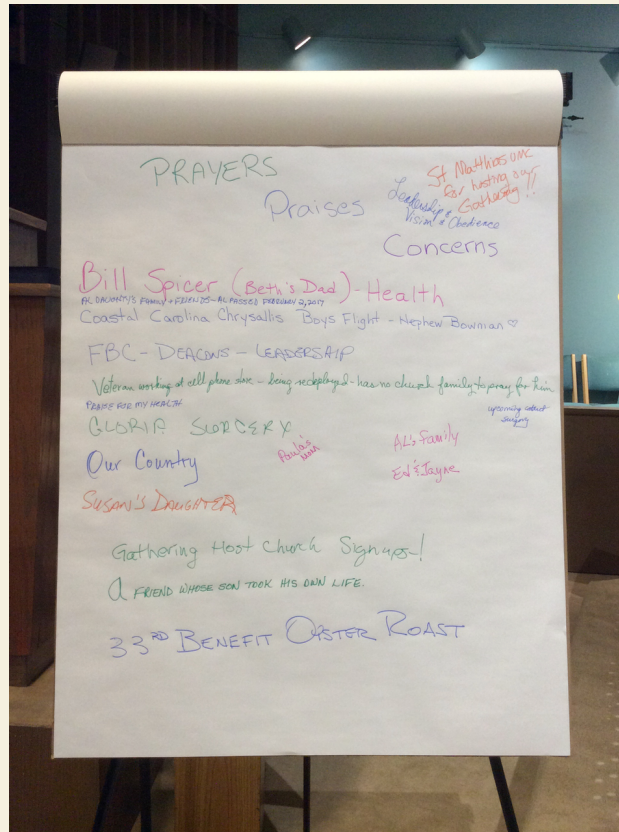 PRAYERS
St Matthias UMC
for hosting our
Gathering!!
Praises
Leadership &
Vision & Obedience
Concerns
Bill Spicer (Beth's Dad) - Health
AL DAUGHTY'S FAMILY + FRIENDS - AL PASSED FEBRUARY 2, 2017
Coastal Carolina Chrysallis Boys Flight - Nephew Bowman ♡
FBC - DEACONS - LEADERSHIP
Veteran working at cell phone store - being redeployed - has no church family to pray for him
PRAISE FOR MY HEALTH
upcoming
surgery
GLORIA SURGERY
Paula's
mom
AL's Family
Our Country
Ed & Jayne
SUSAN'S DAUGHTER
Gathering Host Church Signups!
A FRIEND WHOSE SON TOOK HIS OWN LIFE.
33RD BENEFIT OYSTER ROAST